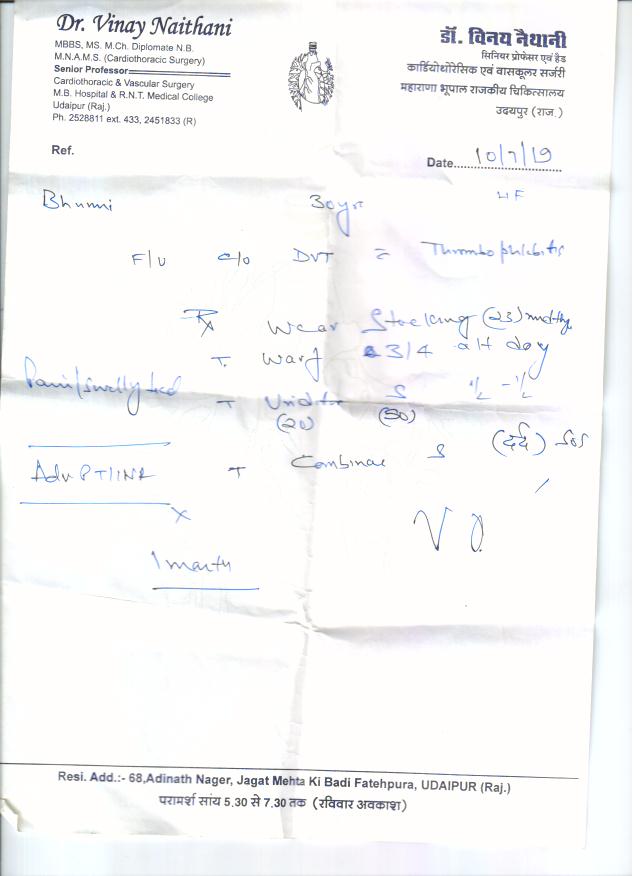 Dr. Vinay Naithani
MBBS, MS. M.Ch. Diplomate N.B.
M.N.A.M.S. (Cardiothoracic Surgery)
Senior Professor
Cardiothoracic & Vascular Surgery
M.B. Hospital & R.N.T. Medical College
Udaipur (Raj.)
Ph. 2528811 ext. 433, 2451833 (R)
डॉ. विनय नैथानी
सिनियर प्रोफेसर एवं हैड
कार्डियोथोरेसिक एवं वासकूलर सर्जरी
महाराणा भूपाल राजकीय चिकित्सालय
उदयपुर (राज.)
Ref.
Date 10/7/19
30yr
F/U c/o DVT = Thrombophlebitis
Rx Wear Stocking (23)
T. Warf 3/4 alt day
T
(20) (50)
(दर्द) SOS
Adv PT/INR T
Resi. Add.:- 68,Adinath Nager, Jagat Mehta Ki Badi Fatehpura, UDAIPUR (Raj.)
परामर्श सांय 5.30 से 7.30 तक (रविवार अवकाश)